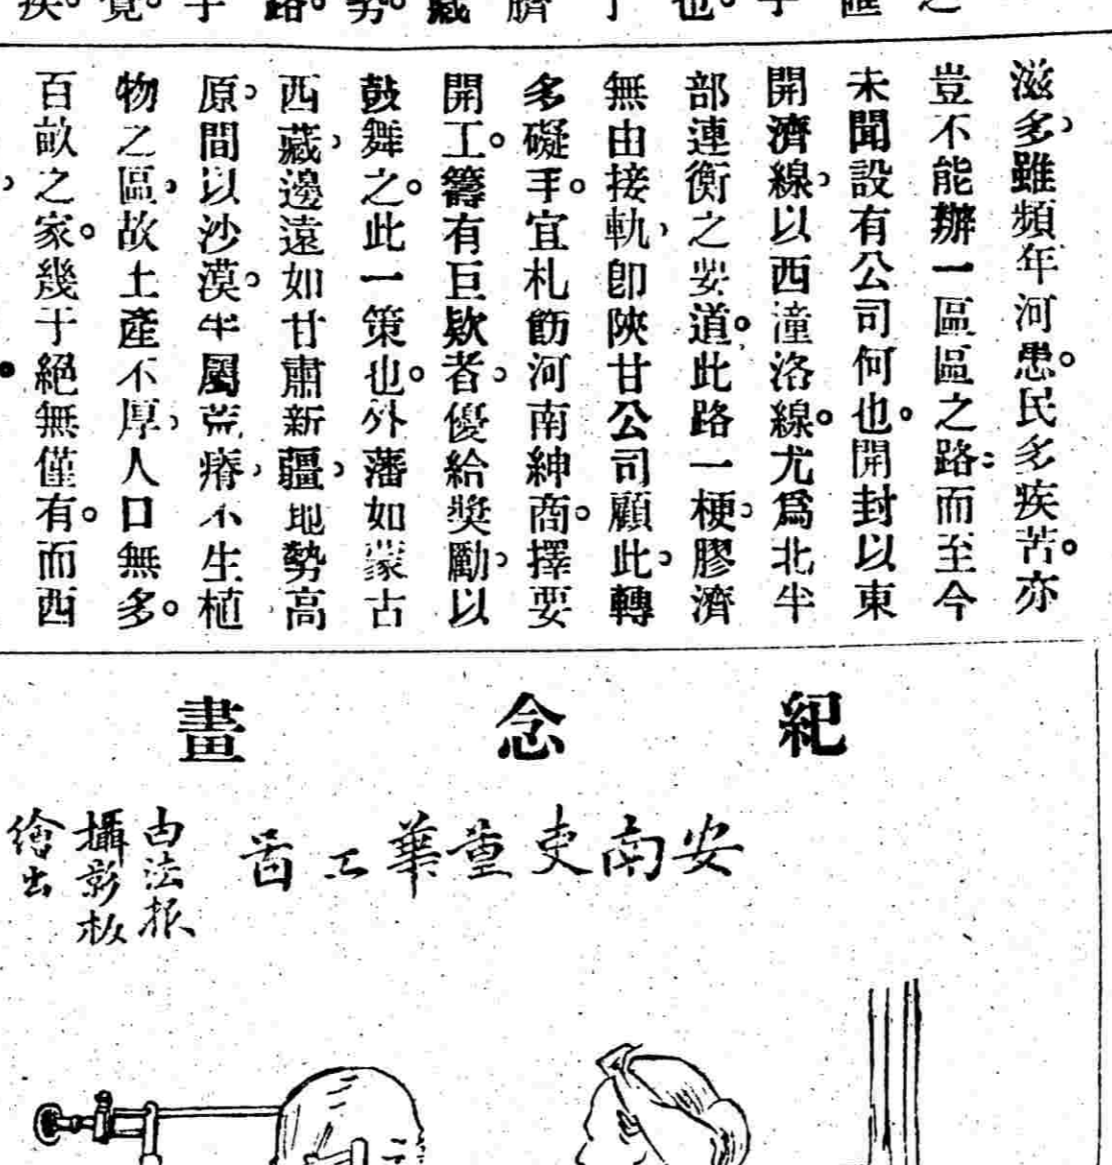 滋多，雖頻年河患。民多疾苦。亦
豈不能辦一區區之路：而至今
未聞設有公司何也。開封以東
開濟線，以西潼洛線。尤爲北半
部連衡之要道。此路一梗，膠濟
無由接軌，卽陝甘公司顧此，轉
多礙手。宜札飭河南紳商。擇要
開工。籌有巨欵者，優給奬勵，以
鼓舞之。此一策也。外藩如蒙古
西藏，邊遠如甘肅新疆，地勢高
原，間以沙漠。半屬荒瘠，不生植
物之區，故土產不厚，人口無多。
百畝之家。幾于絕無僅有。而西
紀念畫
安南吏量華工啚
由法報
攝影板
繪出